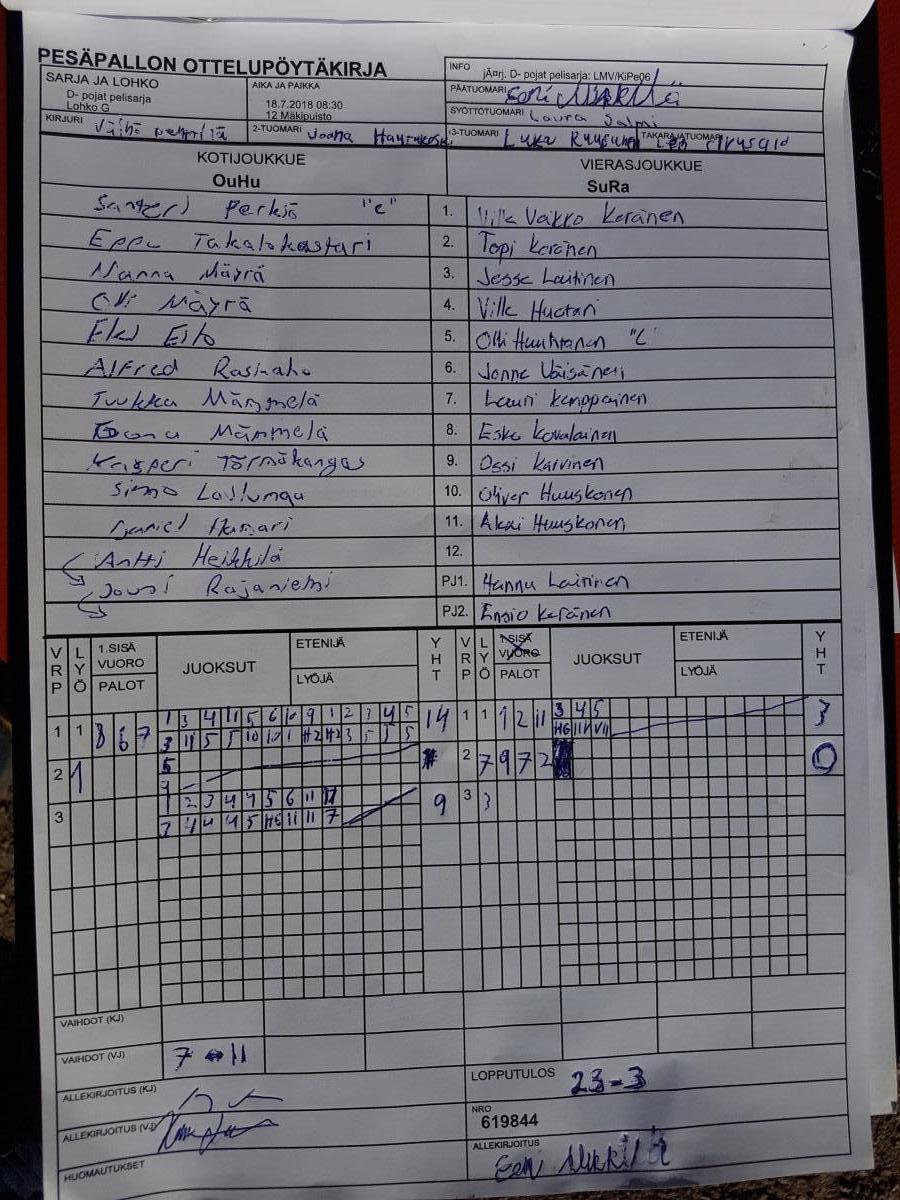 PESÄPALLON OTTELUPÖYTÄKIRJA
INFO jÃ¤rj. D- pojat pelisarja: LMV/KiPe06
SARJA JA LOHKO
D- pojat pelisarja
Lohko G
AIKA JA PAIKKA
18.7.2018 08:30
12 Mäkipuisto
PÄÄTUOMARI
SYÖTTÖTUOMARI Laura Salmi
KIRJURI
2-TUOMARI Joona
3-TUOMARI Luka
TAKARAJATUOMARI
KOTIJOUKKUE
OuHu
VIERASJOUKKUE
SuRa
Santeri Perkiö "C" 1. Ville Veikko Keränen
Eppu Takalokastari 2. Topi Keränen
Mäyrä 3. Jesse Laitinen
Olli Mäyrä 4. Ville Huotari
5. Olli "C"
Alfred Rasinaho 6. Jonne Väisänen
Tuukka Mämmelä 7. Lauri Kemppainen
Mämmelä 8. Eska Kovalainen
Kasperi Törmäkangas 9. Ossi Karvinen
Simo 10. Oliver Huuskonen
Daniel 11. Huuskonen
Antti Heikkilä 12.
Jouni Rajaniemi PJ1. Hannu Laitinen
PJ2. Ensio Keränen
VRP LYÖ 1.SISÄ VUORO PALOT JUOKSUT ETENIJÄ LYÖJÄ YHT VRP LYÖ 1.SISÄ VUORO PALOT JUOKSUT ETENIJÄ LYÖJÄ YHT
1 1 8 6 7 1 3 4 11 5 6 10 9 1 2 3 4 5 14 1 1 1 2 11 3 4 5 3
3 11 5 5 10 10 1 H2 H2 3 5 5 5 H6 11 VII
2 1 5 2 7 9 7 2 0
9
3 1 2 3 4 4 5 6 11 9 3 3
3 4 4 4 5 H6 11 11 7
VAIHDOT (KJ)
VAIHDOT (VJ) 7 ↔ 11
ALLEKIRJOITUS (KJ)
LOPPUTULOS 23-3
ALLEKIRJOITUS (VJ)
NRO
619844
HUOMAUTUKSET
ALLEKIRJOITUS